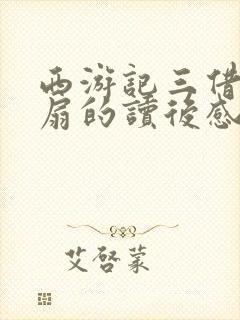 西游記三借
扇的讀後感
艾啓蒙